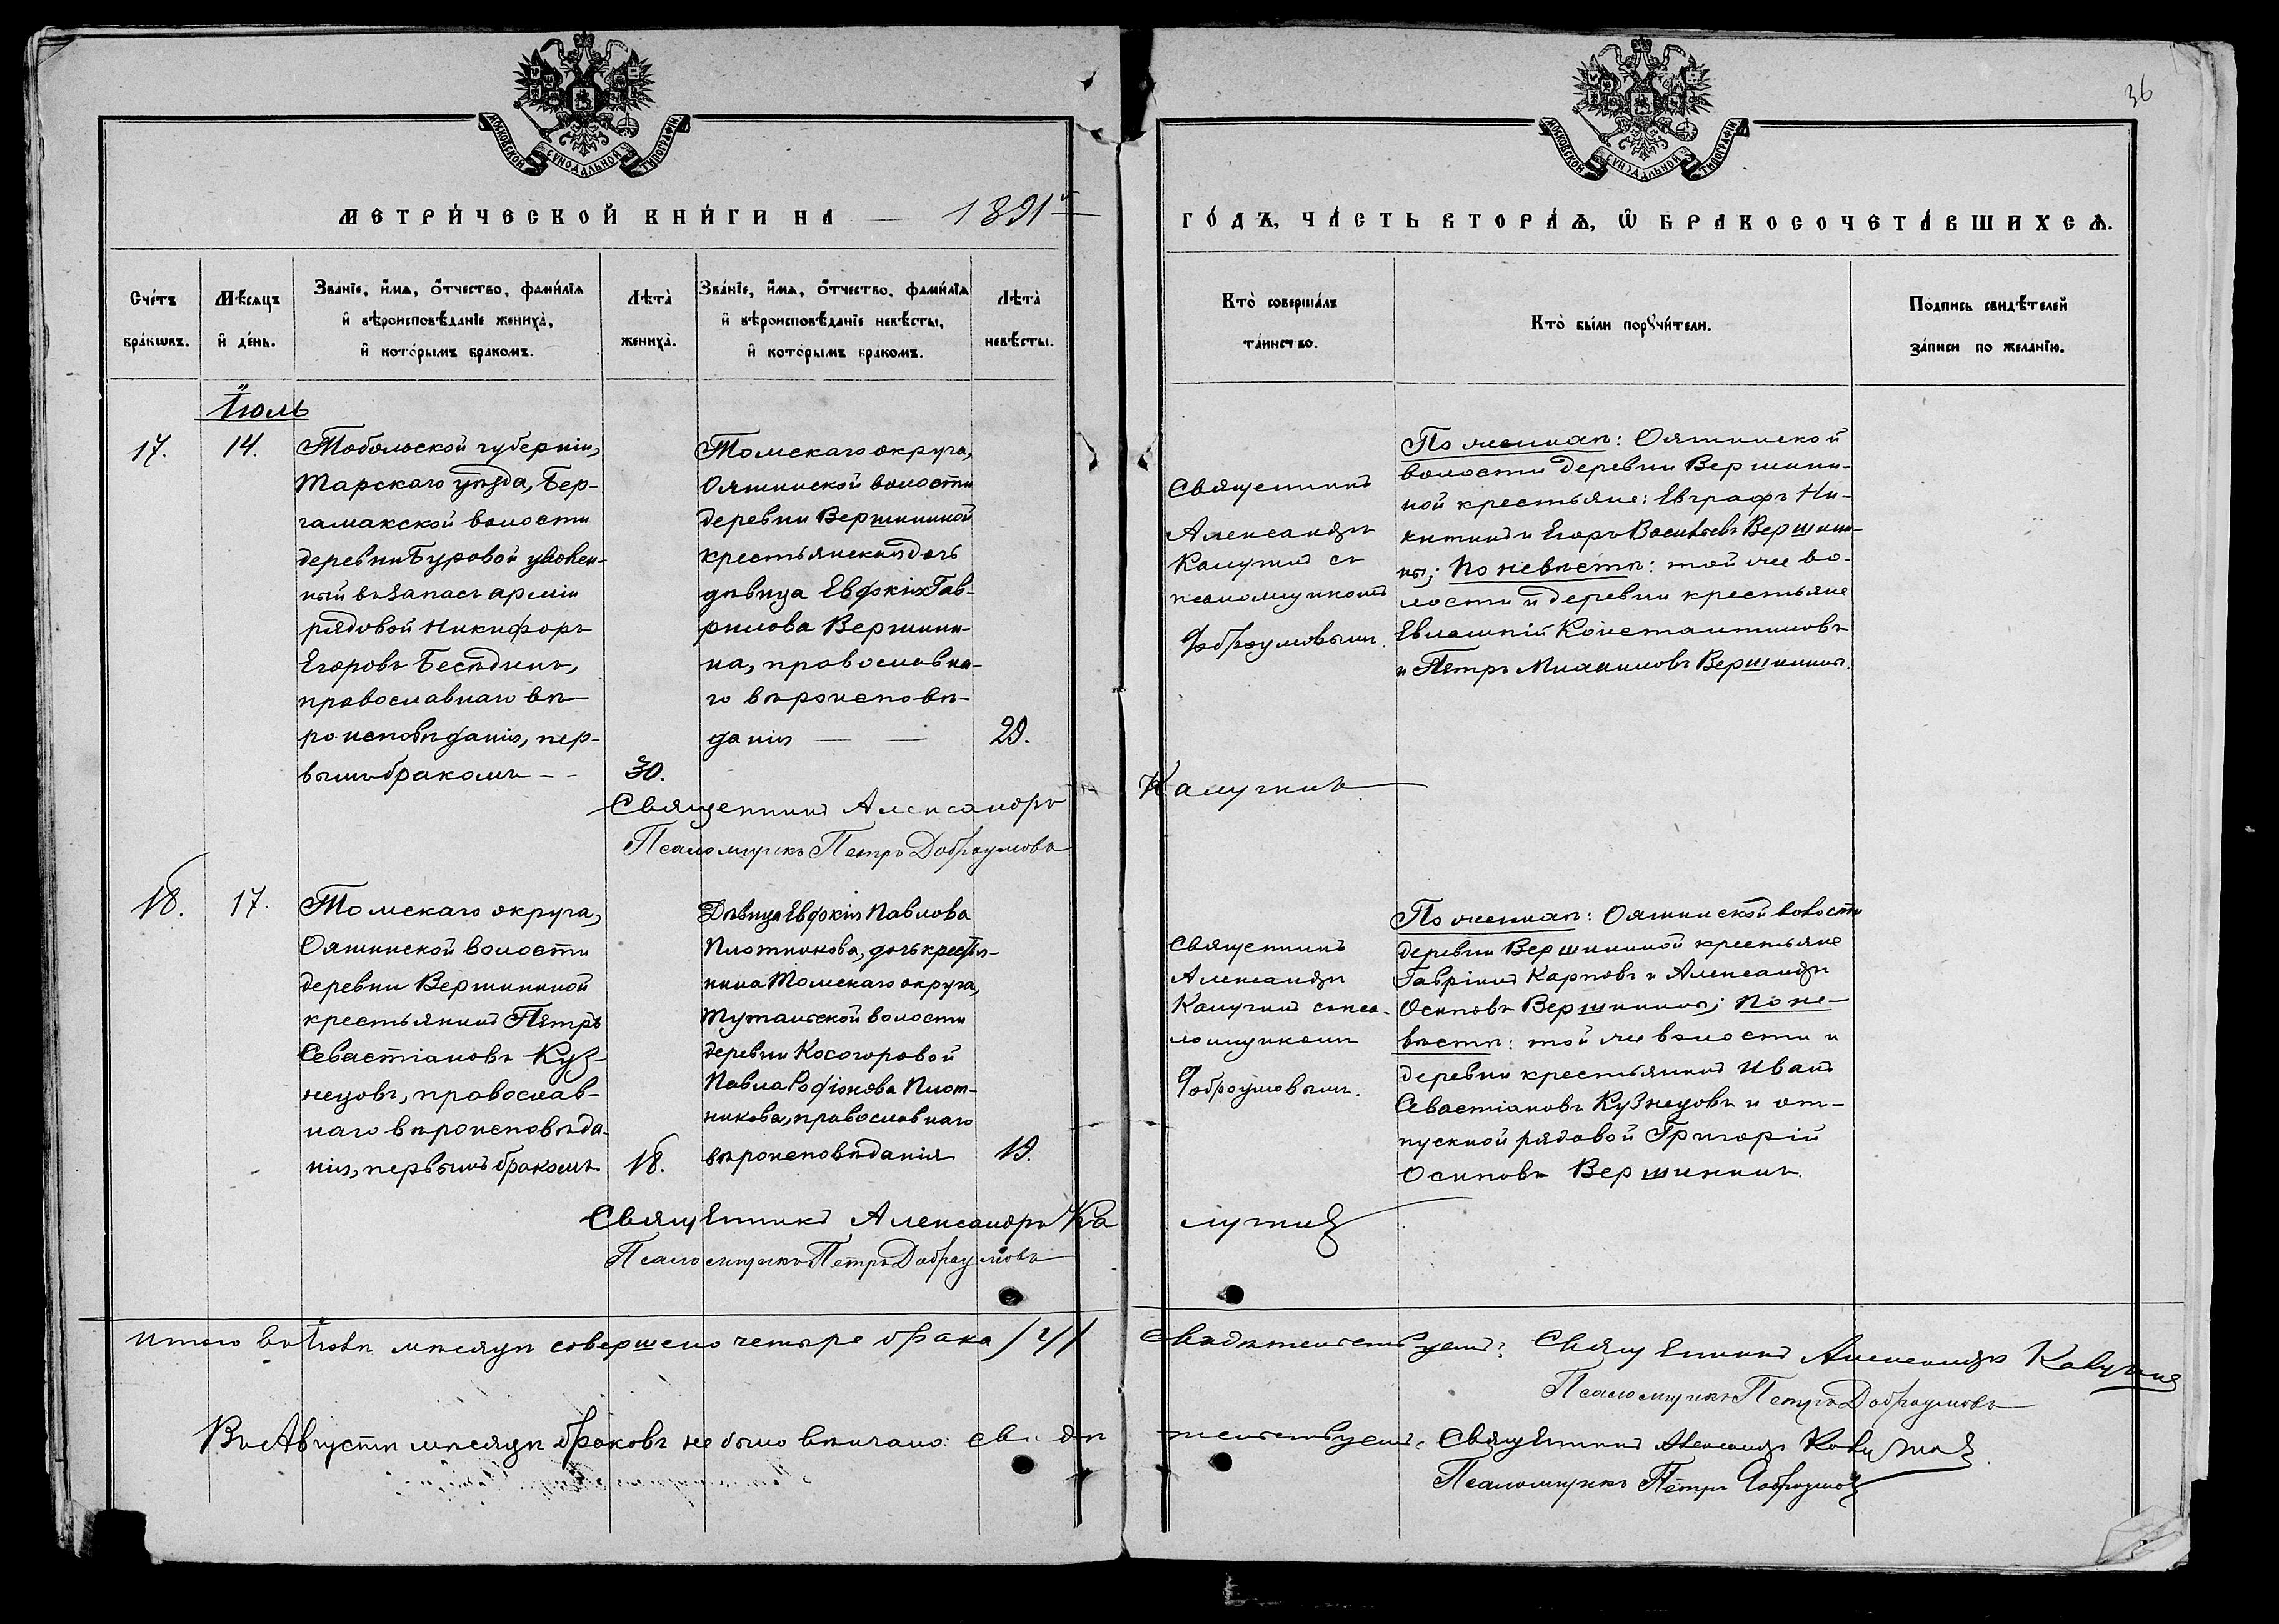 36
МОСКОВСКОЙ СѴНОДАЛЬНОЙ ТИПОГРАФІИ
МОСКОВСКОЙ СѴНОДАЛЬНОЙ ТИПОГРАФІИ
МЕТРИ́ЧЕСКОЙ КНИ́ГИ НА — 1891 й
ГО́ДЪ, ЧА́СТЬ ВТОРА́Ѧ, Ѽ БРАКОСОЧЕТА́ВШИХСѦ.
Сче́тъ бра́кѡвъ.
Мѣ́сяцъ и҆ де́нь.
Зва́нїе, и҆́мѧ, о҆́тчество, фами́лїѧ
и҆ вѣроисповѣ́данїе жениха̀,
и҆ кото́рымъ бра́комъ.
Лѣта̀ жениха̀.
Зва́нїе, и҆́мѧ, о҆́тчество, фами́лїѧ
и҆ вѣроисповѣ́данїе невѣ́сты,
и҆ кото́рымъ бра́комъ.
Лѣта̀ невѣ́сты.
Кто̀ соверша́лъ
та́инство.
Кто̀ бы́ли порꙋчи́тели.
По́дпись свидѣ́телей
за́писи по жела́нїю.
Іюль
17.
14.
Тобольской губерніи,
Тарскаго уѣзда, Бер-
гамакской волости
деревни Буровой уволен-
ный въ запасъ арміи
рядовой Никифоръ
Егоровъ Бесѣдинъ,
православнаго вѣ-
роисповѣданія, пер-
вымъ бракомъ - -
30.
Томскаго округа,
Ояшинской волости
деревни Вершининой
крестьянская дочь
дѣвица Евдокія Гав-
рилова Вершини-
на, православна-
го вѣроисповѣ-
данія — —
29.
Священникъ
Александръ
Калугинъ съ
псаломщикомъ
Доброумовымъ.
По женихѣ: Ояшинской
волости деревни Вершини-
ной крестьяне: Евграфъ Ни-
китинъ и Егоръ Васильевъ Верши-
ны; По невѣстѣ: той же во-
лости и деревни крестьяне
Евлампій Константиновъ
и Петръ Михаиловъ Вершинины.
Священникъ Александръ Калугинъ
Псаломщикъ Петръ Доброумовъ
18.
17.
Томскаго округа,
Ояшинской волости
деревни Вершининой
крестьянинъ Петръ
Севастіановъ Куз-
нецовъ, православ-
наго вѣроисповѣда-
нія, первымъ бракомъ.
18.
Дѣвица Евдокія Павлова
Плотникова, дочь крестья-
нина Томскаго округа,
Тутальской волости
деревни Косогоровой
Павла Родіонова Плот-
никова, православнаго
вѣроисповѣданія
19.
Священникъ
Александръ
Калугинъ съ пса-
ломщикомъ
Доброумовымъ.
По женихѣ: Ояшинской волости
деревни Вершининой крестьяне
Гавріилъ Карповъ и Александръ
Осиповъ Вершинины; По не-
вѣстѣ: той же волости и
деревни крестьянинъ Иванъ
Севастіановъ Кузнецовъ и от-
пускной рядовой Григорій
Осиповъ Вершининъ.
Священникъ Александръ Калугинъ
Псаломщикъ Петръ Доброумовъ
Итого въ Іюлѣ мѣсяцѣ совершено четыре брака /4/ свидѣтельствуемъ: Священникъ Александръ Калугинъ
Псаломщикъ Петръ Доброумовъ
Въ Августѣ мѣсяцѣ браковъ не было вѣнчано: свидѣтельствуемъ: Священникъ Александръ Калугинъ
Псаломщикъ Петръ Доброумовъ